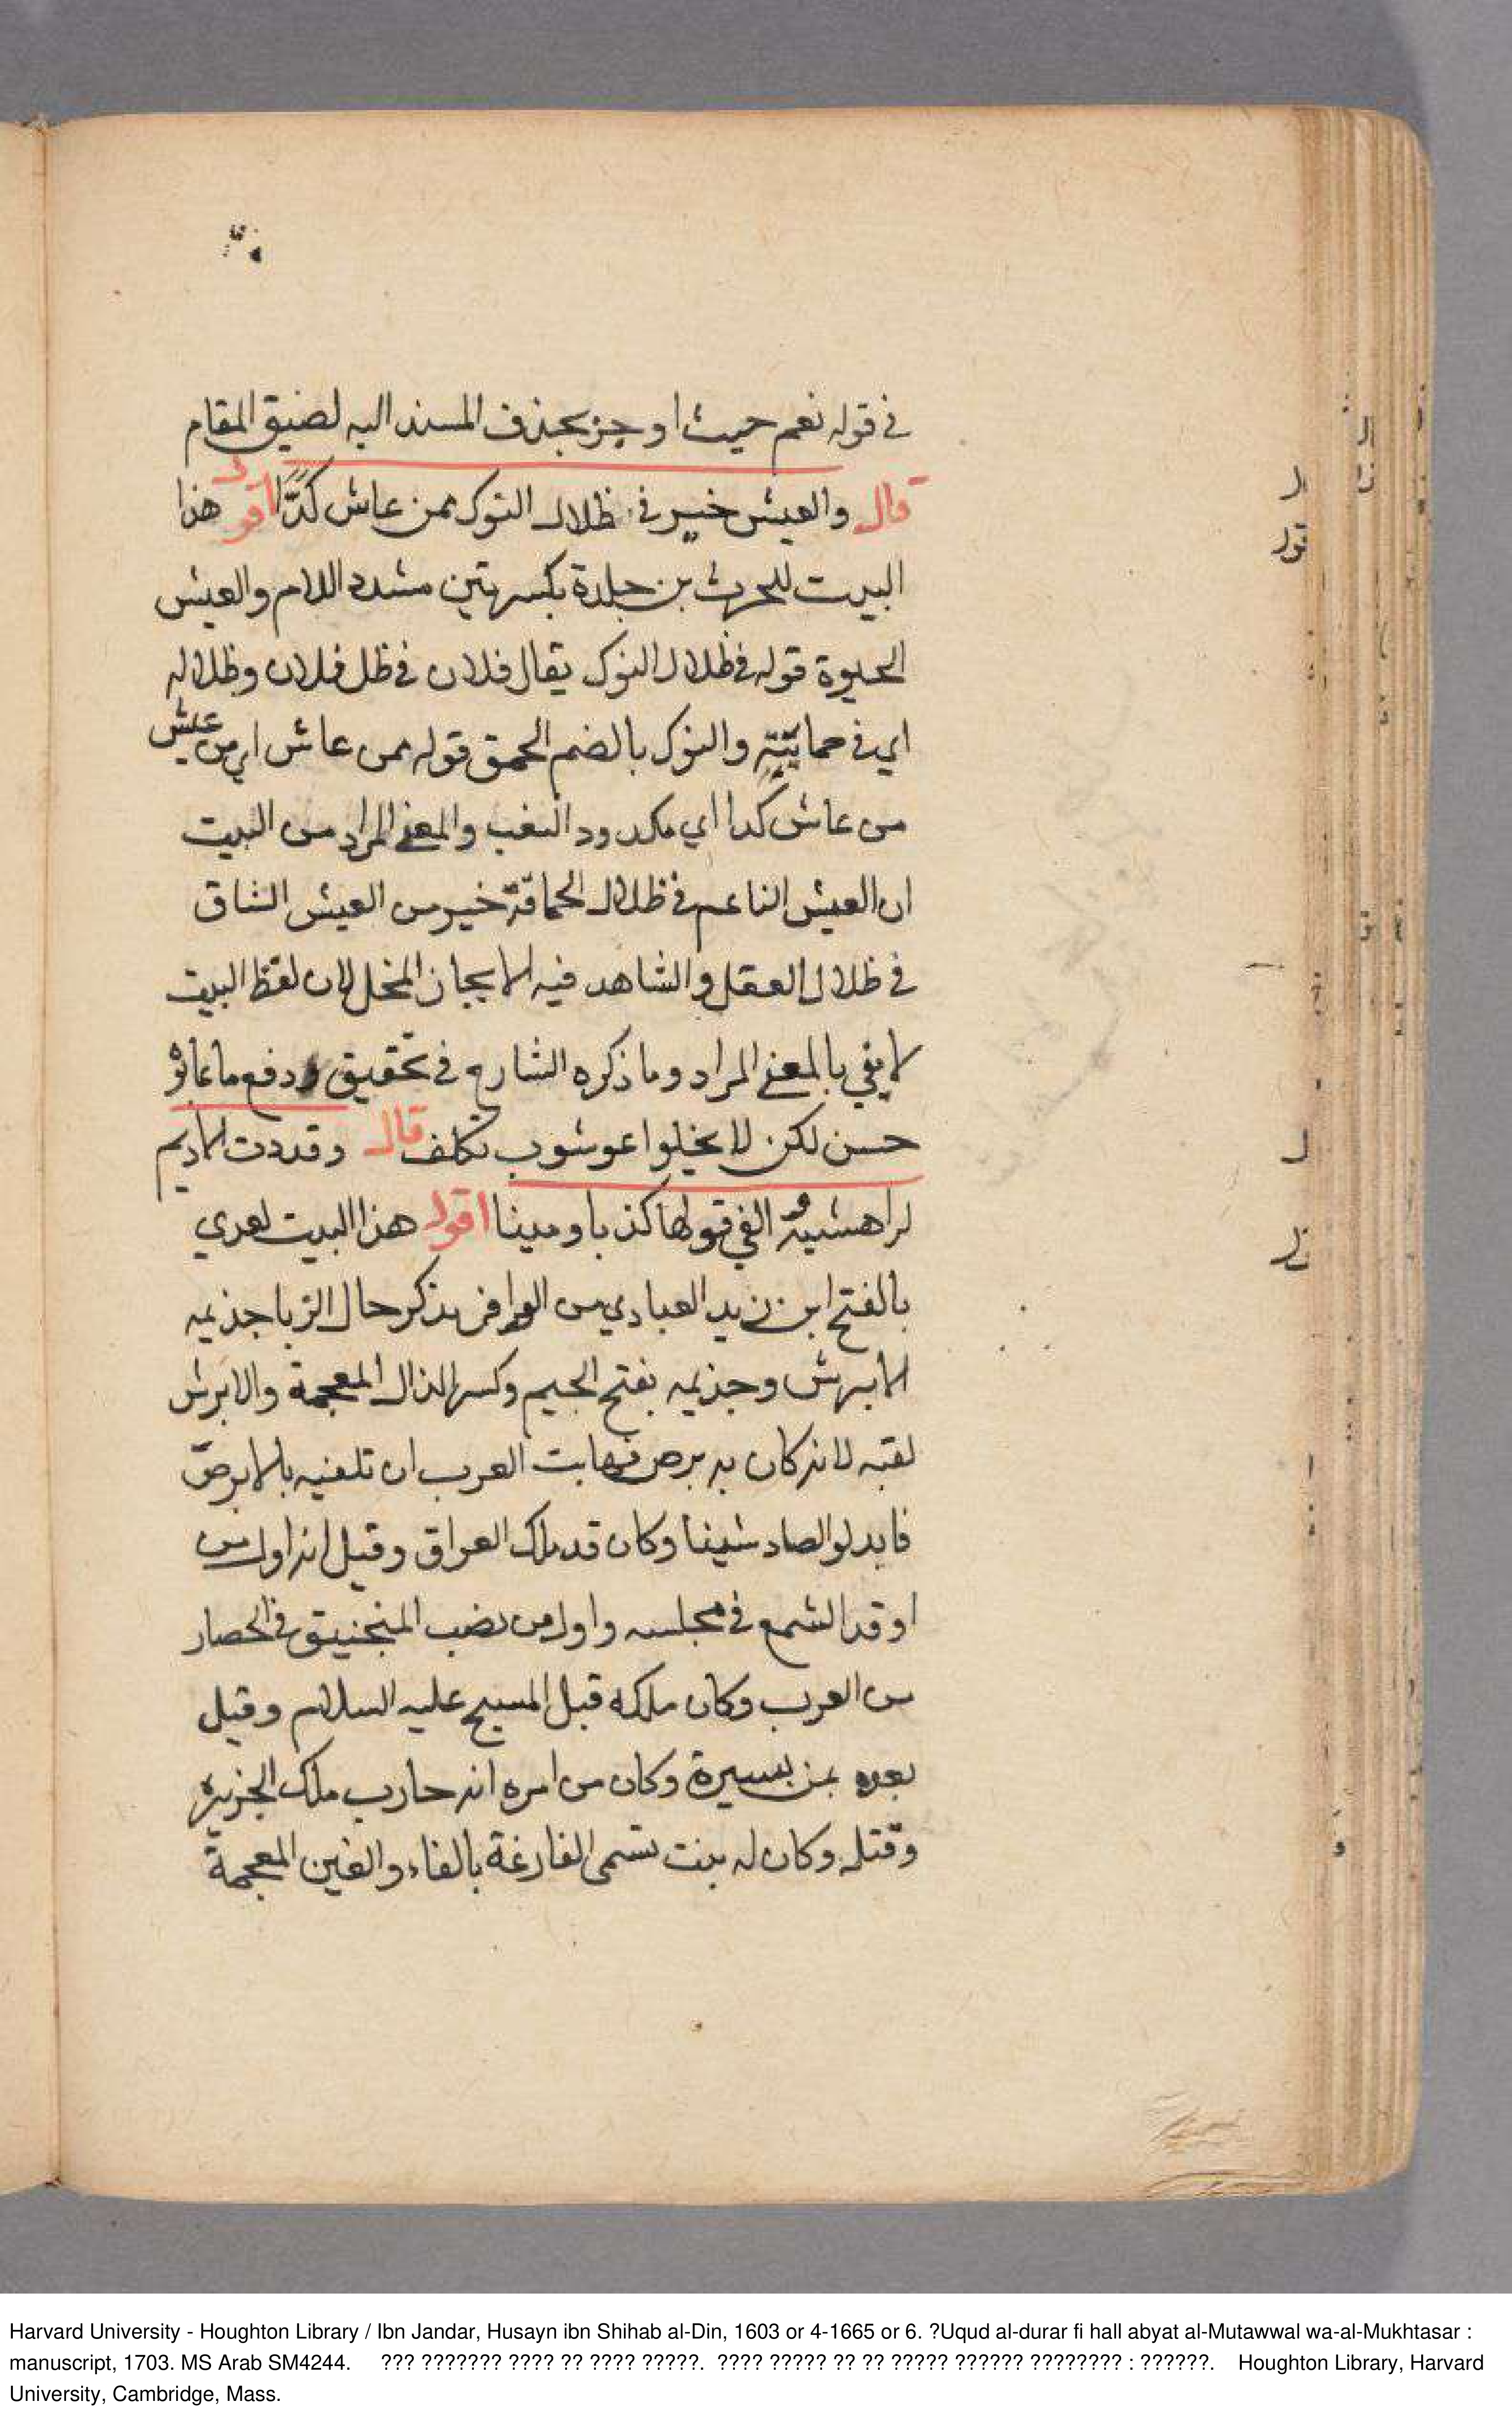 في قوله نعم حيث اوجز بحذف المسند اليه لضيق المقام
قال والعيش خير في ظلال النوك ممن عاش كدًّا اقول هذا
البيت للحرث بن حلدة بكسرتين مشدد اللام والعيش
الحيوة قوله في ظلال النوك يقال فلان في ظل فلان وظلاله
اي في حمايته والنوك بالضم الحمق قوله ممن عاش اي من عيش
من عاش كدا اي مكدود التعب والمعنى المراد من البيت
ان العيش الناعم في ظلال الحماقة خير من العيش الشاق
في ظلال العقل والشاهد فيه الايجاز المخل لان لفظ البيت
لا يفي بالمعنى المراد وما ذكره الشارح في تحقيق ودفع ما
حسن لكن لا يخلوا عن شوب تكلف قال وقددت الاديم
لراهشيه الفى قولها كذبا ومينا اقول هذا البيت لعدي
بالفتح ابن زيد العبادي من الوافر يذكر حال الزبا جذيمه
الابرش وجذيمه بفتح الجيم وكسر الذال المعجمة والابرش
لقبه لانه كان به برص فهابت العرب ان تلقبه بالابرص
فابدلو الصاد شينا وكان قد ملك العراق وقيل انه اول من
اوقد الشمع في مجلسه واول من نصب المنجنيق في الحصار
من العرب وكان ملكه قبل المسيح عليه السلام وقيل
بعده بمن يسيرة وكان من امره انه حارب ملك الجزيره
وقتله وكان له بنت تسمى الفارغة بالفاء والغين المعجمة
Harvard University - Houghton Library / Ibn Jandar, Husayn ibn Shihab al-Din, 1603 or 4-1665 or 6. ?Uqud al-durar fi hall abyat al-Mutawwal wa-al-Mukhtasar :
manuscript, 1703. MS Arab SM4244. ??? ??????? ???? ?? ???? ?????. ???? ????? ?? ?? ????? ?????? ???????? : ??????. Houghton Library, Harvard
University, Cambridge, Mass.